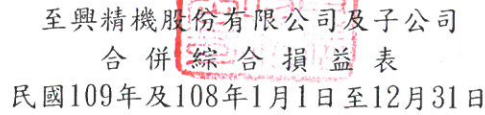 至興精機股份有限公司及子公司
合併綜合損益表
民國109年及108年1月1日至12月31日